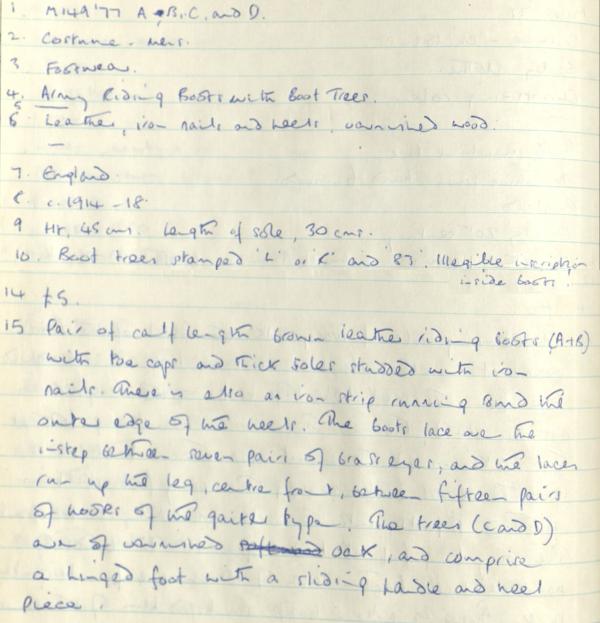 1. M149'77 A, B, C, and D.
2. Costume - mens.
3. Footwear.
4. Army Riding Boots with Boot Trees.
5
6 Leather, iron nails and heels, varnished wood.
7. England.
8. c. 1914-18.
9 Ht, 45 cms. Length of sole, 30 cms.
10. Boot trees stamped 'L' or 'R' and '87'. Illegible inscription
inside boots.
14 £5.
15 Pair of calf length brown leather riding boots (A+B)
with toe caps and thick soles studded with iron
nails. There is also an iron strip running round the
outer edge of the heels. The boots lace over the
instep between seven pairs of brass eyes, and the laces
run up the leg, centre front, between fifteen pairs
of hooks of the gaiter type. The trees (C and D)
are of varnished oak, and comprise
a hinged foot with a sliding handle and heel
piece.